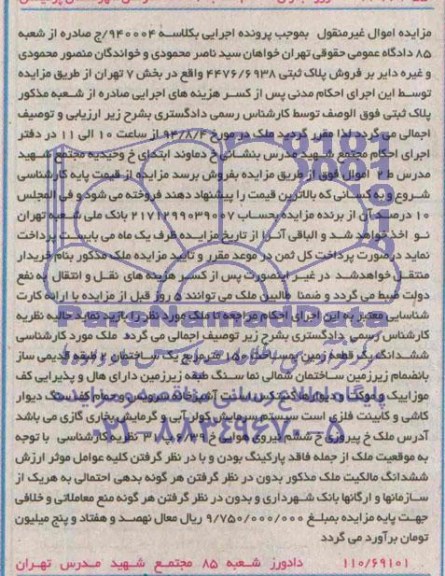 مزایده اموال غیرمنقول بموجب پرونده اجرایی بکلاسه ۹۴۰۰۰۴/ج صادره از شعبه
۸۵ دادگاه عمومی حقوقی تهران خواهان سید ناصر محمودی و خواندگان منصور محمودی
و غیره دایر بر فروش پلاک ثبتی ۴۴۷۶/۶۹۳۸ واقع در بخش ۷ تهران از طریق مزایده
توسط این اجرای احکام مدنی پس از کسر هزینه های اجرایی صادره از شعبه مذکور
پلاک ثبتی فوق الوصف توسط کارشناس رسمی دادگستری بشرح زیر ارزیابی و توصیف
اجمالی می گردد لذا مقرر گردید ملک در مورخ ۹۴/۸/۴ از ساعت ۱۰ الی ۱۱ در دفتر
اجرای احکام مجتمع شهید مدرس بنشانی خ دماوند ابتدای خ وحیدیه مجتمع شهید
مدرس ط ۲ اموال فوق از طریق مزایده بفروش برسد مزایده از قیمت پایه کارشناسی
شروع و به کسانی که بالاترین قیمت را پیشنهاد دهند فروخته می شود و فی المجلس
۱۰ درصد آن از برنده مزایده بحساب ۲۱۷۱۲۹۹۰۳۹۰۰۷ بانک ملی شعبه تهران
نو اخذ خواهد شد و الباقی آنرا از تاریخ مزایده ظرف یک ماه می بایست پرداخت
نماید در صورت پرداخت کل ثمن در موعد مقرر و تایید مزایده ملک مذکور بنام خریدار
منتقل خواهد شد در غیر اینصورت پس از کسر هزینه های نقل و انتقال به نفع
دولت ضبط می گردد و ضمنا طالبین ملک می توانند ۵ روز قبل از مزایده با ارائه کارت
شناسایی معتبر به این اجرای احکام مراجعه تا ملک مورد نظر را بازدید نماید خلاصه نظریه
کارشناس رسمی دادگستری بشرح زیر توصیف اجمالی می گردد ملک مورد کارشناسی
ششدانگ یک قطعه زمین بمساحت ۱۵۰ مترمربع یک ساختمان ۲ طبقه قدیمی ساز
بانضمام زیرزمین ساختمان شمالی نما سنگ طبقه زیرزمین دارای هال و پذیرایی کف
موزاییک و موکت و دیوارها گچ است آشپزخانه و سرویس و حمام کف سنگ دیوار
کاشی و کابینت فلزی است سیستم سرمایش کولر آبی و گرمایش بخاری گازی می باشد
آدرس ملک خ پیروزی خ ششم نیروی هوایی خ ۳۹/ نظریه کارشناسی با توجه
به موقعیت ملک از جمله فاقد پارکینگ بودن و با در نظر گرفتن کلیه عوامل موثر ارزش
ششدانگ مالکیت ملک مذکور بدون در نظر گرفتن هر گونه بدهی احتمالی به هریک از
سازمانها و ارگانها بانک شهرداری و بدون در نظر گرفتن هر گونه منع معاملاتی و خلافی
جهت پایه مزایده بمبلغ ۹/۷۵۰/۰۰۰/۰۰۰ ریال معال نهصد و هفتاد و پنج میلیون
تومان برآورد می گردد
۱۱۰/۶۹۱۰۱ دادورز شعبه ۸۵ مجتمع شهید مدرس تهران
ParsNamadData
پایگاه اطلاع رسانی مناقصه و مزایده
۰۲۱-۸۸۳۴۹۶۷۰-۵